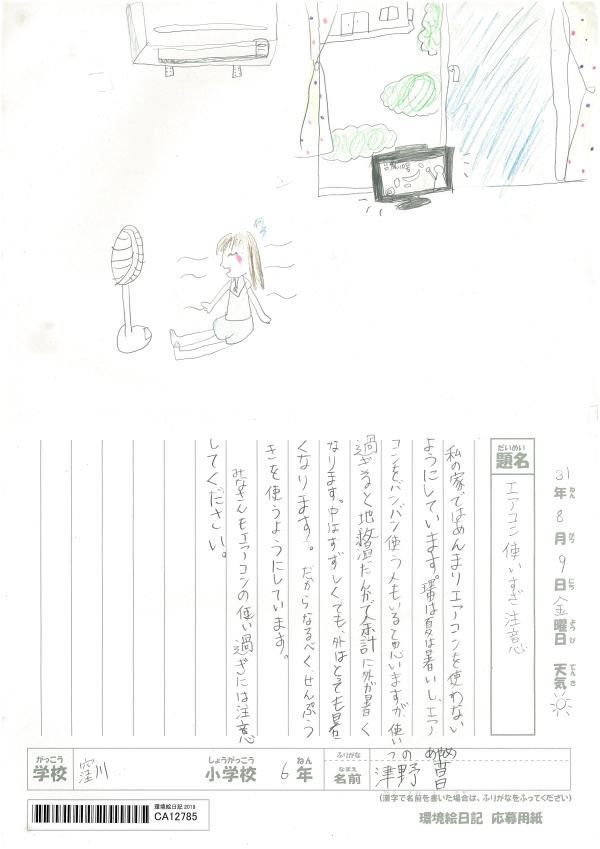 31年8月9日金曜日 天気
ねん がつ にち ようび てんき
だいめい
題名
エアコン使いすぎ注意
私の家ではめんまりエアコンを使わない
ようにしています。理由は夏は暑いし、エア
コンをバンバン使う人もいると思いますが、使い
過ぎると地球温だんかで余計に外が暑く
なります。中はすずしくても、外はとても暑
くなります。だからなるべく、せんぷう
きを使うようにしています。
みなさんもエアコンの使い過ぎには注意
してください。
がっこう
学校
窪川
しょうがっこう
小学校
6
ねん
年
ふりがな
なまえ
名前
つの あやめ
津野
(漢字で名前を書いた場合は、ふりがなをふってください)
環境絵日記 2019
CA12785
環境絵日記 応募用紙